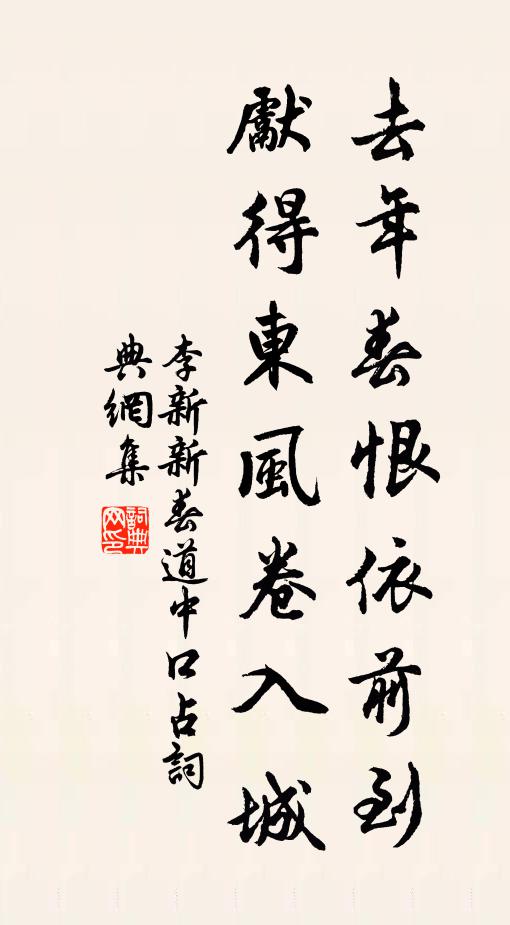 去年春恨依前到
獻得東風卷入城
李新新春道中口占詞
典網集
詞典
网印